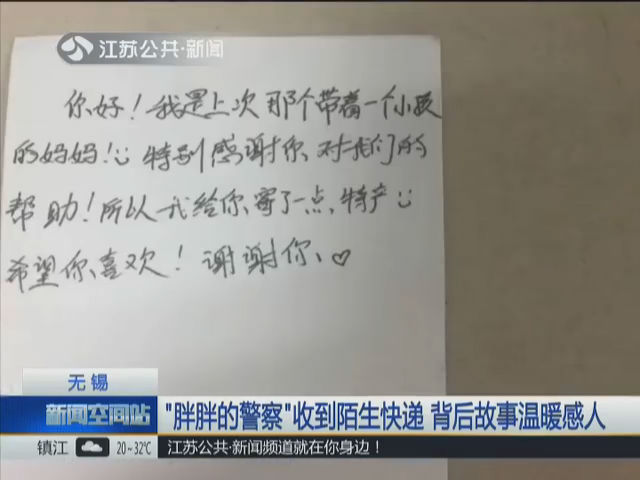 江苏公共·新闻
你好！我是上次那个带着一个小孩
的妈妈！特别感谢你、对我们的
帮助！所以我给你寄了一点特产
希望你喜欢！谢谢你、♡
无锡
新闻空间站
"胖胖的警察"收到陌生快递 背后故事温暖感人
镇江 20~32℃ 江苏公共·新闻频道就在你身边！